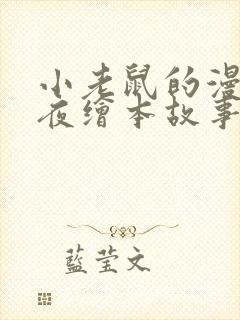 小老鼠的漫
夜繪本故事
藍莹文